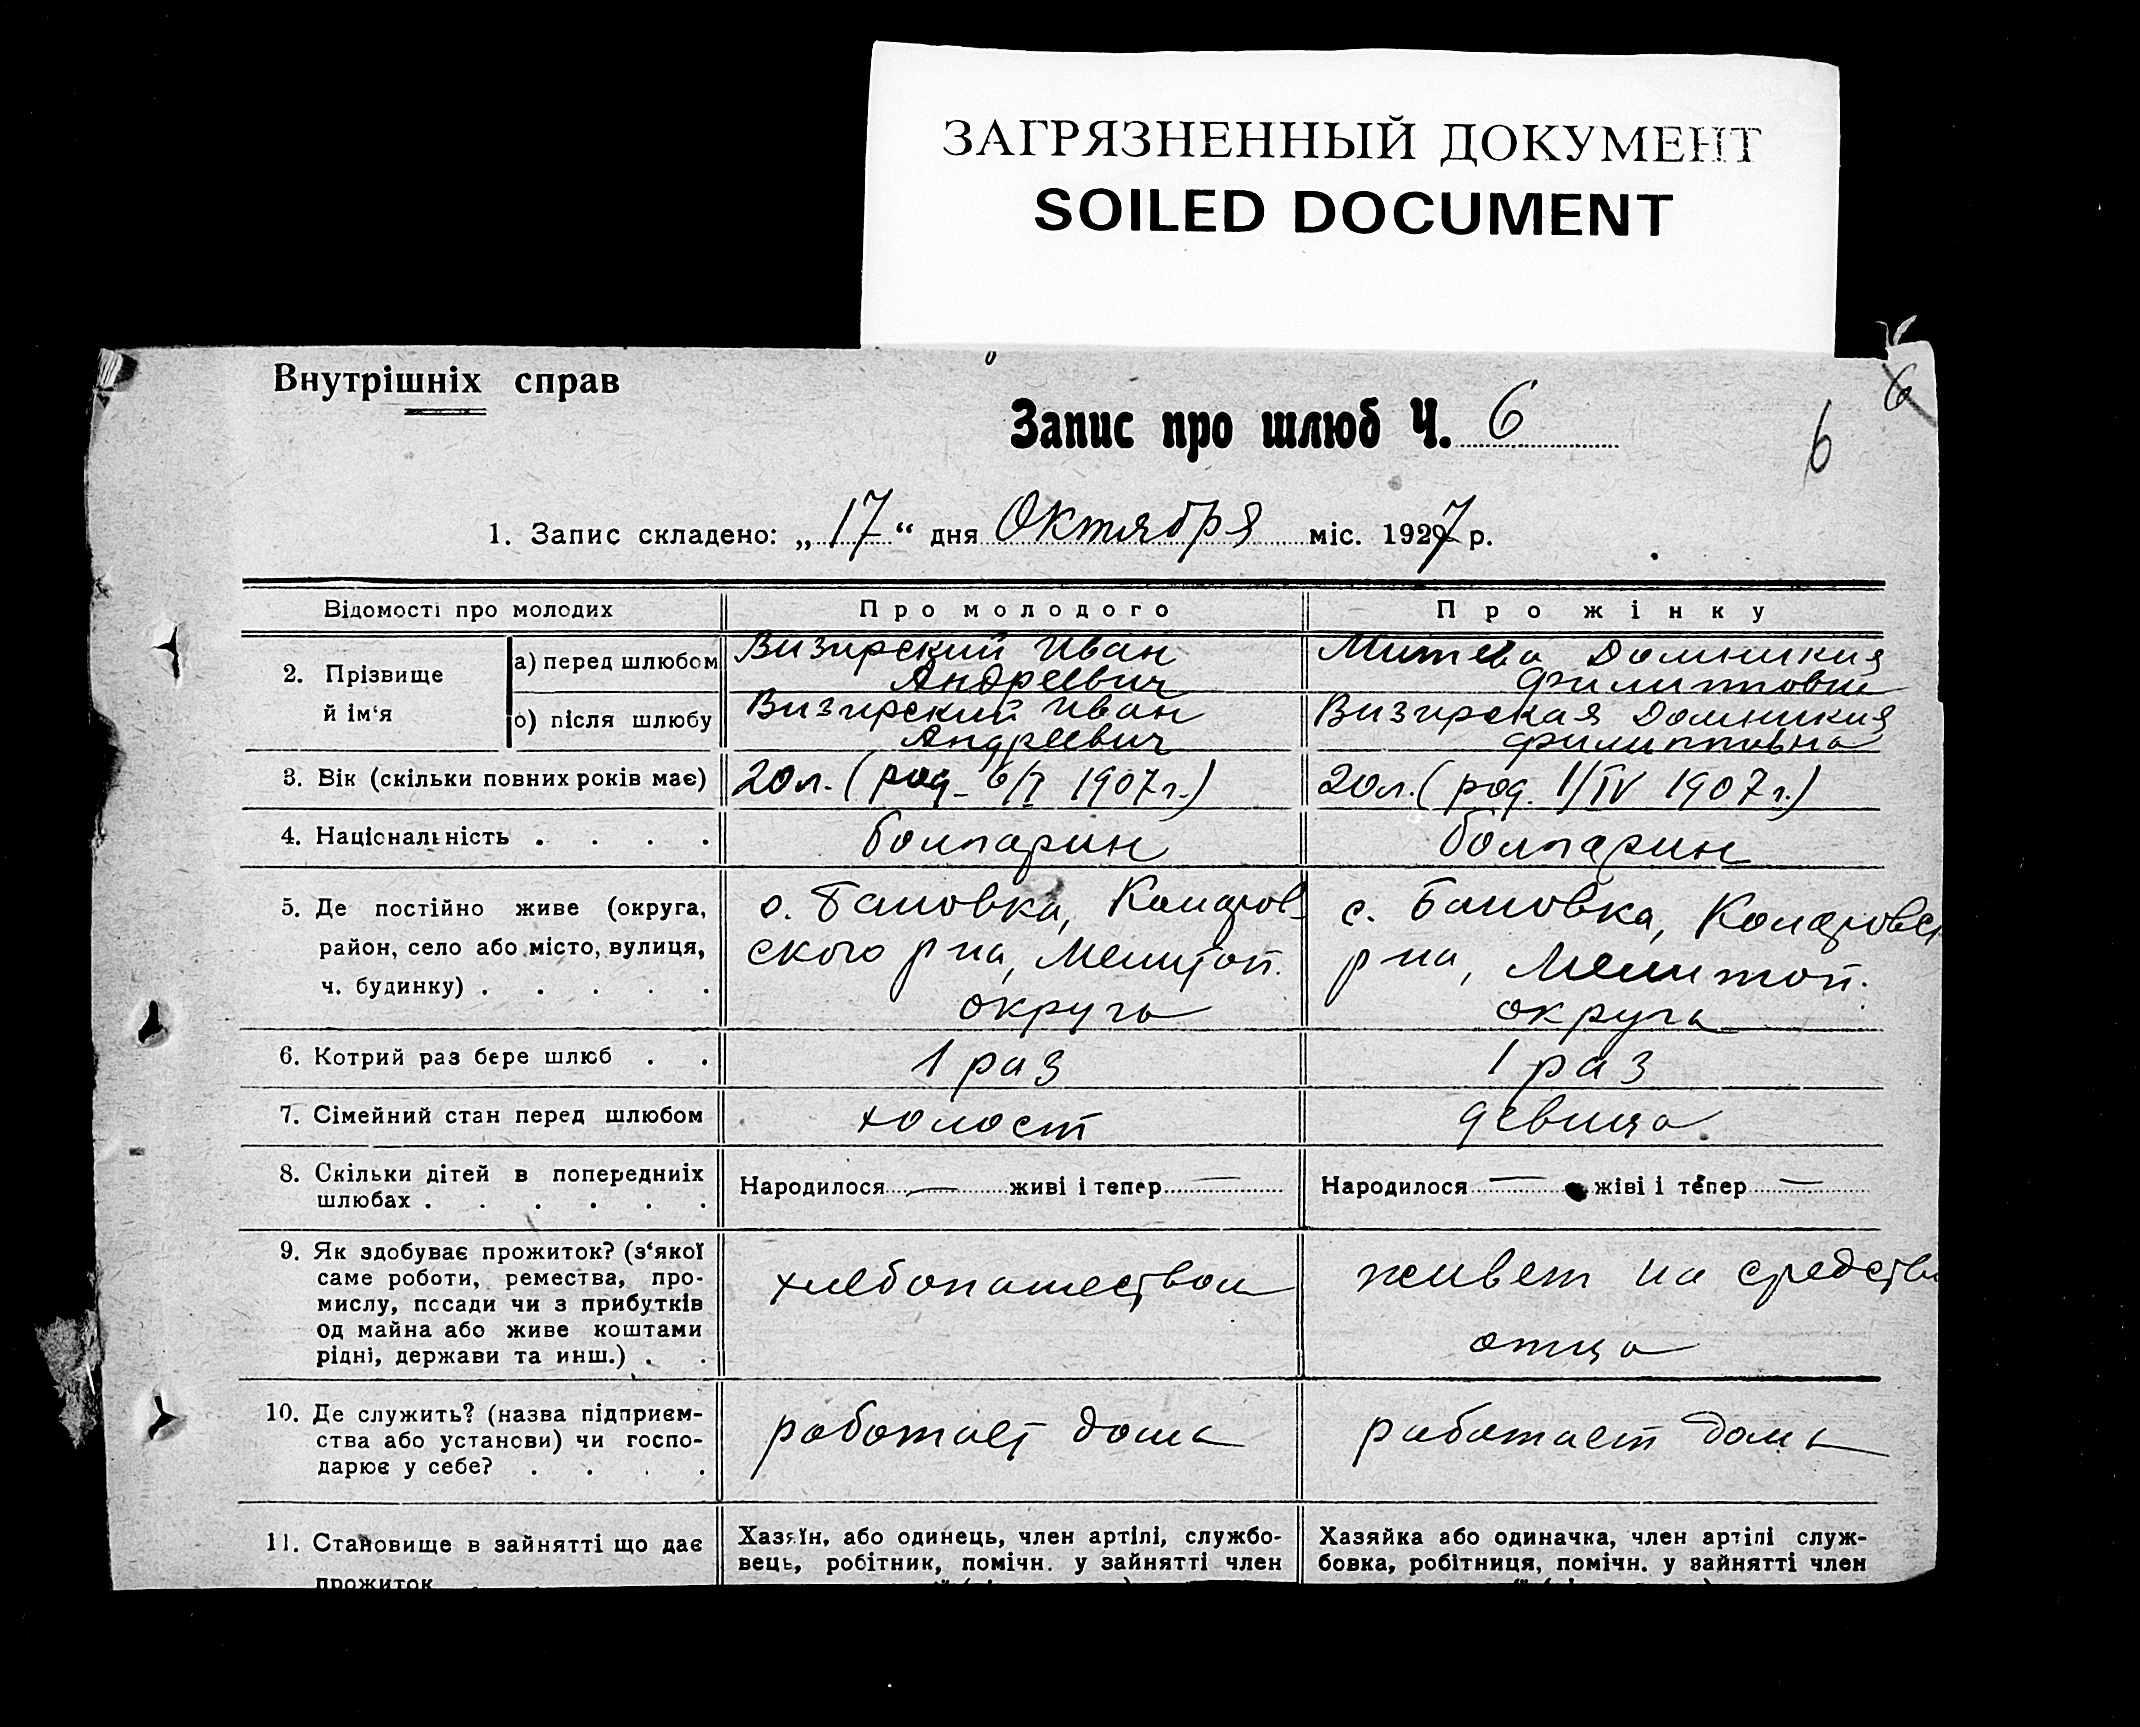 ЗАГРЯЗНЕННЫЙ ДОКУМЕНТ
SOILED DOCUMENT
Внутрішніх справ
6
Запис про шлюб Ч. 6
6
1. Запис складено: „17“ дня Октября міс. 1927 р.
Відомості про молодих
Про молодого
Про жінку
2. Прізвище й ім‘я
а) перед шлюбом
Визирский Иван
Андреевич
Митева Домникия
Филипповна
б) після шлюбу
Визирский Иван
Андреевич
Визирская Домникия
Филипповна
3. Вік (скільки повних років має)
20л. (род. 6/I 1907г.)
20л. (род. 1/IV 1907г.)
4. Національність . . . .
болгарин
болгарин
5. Де постійно живе (округа,
район, село або місто, вулиця,
ч. будинку) . . . . .
с. Бановка, Коларов-
ского р-на, Мелитоп.
округа
с. Бановка, Коларовск
р-на, Мелитоп.
округа
6. Котрий раз бере шлюб . .
1 раз
1 раз
7. Сімейний стан перед шлюбом
холост
девица
8. Скільки дітей в попередниіх
шлюбах . . . . . .
Народилося — живі і тепер —
Народилося — жіві і тепер —
9. Як здобуває прожиток? (з‘якої
саме роботи, ремества, про-
мислу, посади чи з прибутків
од майна або живе коштами
рідні, держави та инш.) . .
хлебопашеством
живет на средства
отца
10. Де служить? (назва підприєм-
ства або установи) чи госпо-
дарює у себе? . . . .
работает дома
работает дома
11. Становище в зайнятті що дає
прожиток
Хазяїн, або одинець, член артілі, службо-
вець, робітник, помічн. у зайнятті член
Хазяйка або одиначка, член артілі служ-
бовка, робітниця, помічн. у зайнятті член